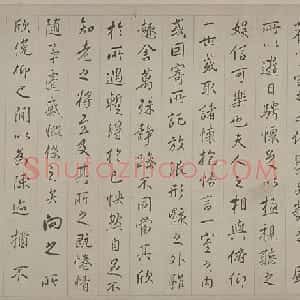 所以遊目騁懷足以極視聽之
娛信可樂也夫人之相與俯仰
一世或取諸懷抱悟言一室之內
或因寄所託放浪形骸之外雖
趣舍萬殊靜躁不同當其欣
於所遇暫得於己快然自足不
知老之將至及其所之既惓情
隨事遷感慨係之矣向之所
欣俛仰之間以為陳迹猶不
Shufazidiao.com